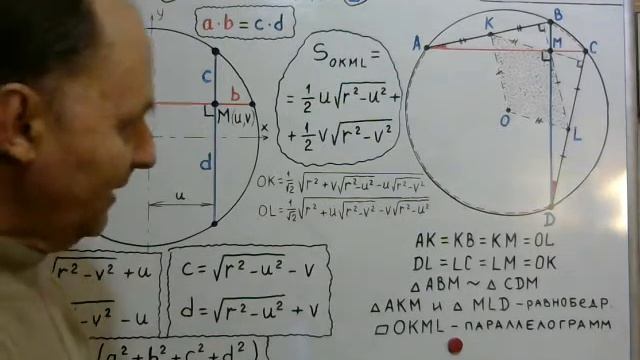 y
a·b=c·d
c
b
M(u,v)
x
d
u
S_OKML =
= 1/2 u√(r²-u²) +
+ 1/2 v√(r²-v²)
OK = 1/√2 √(r²+v√(r²-u²)-u√(r²-v²))
OL = 1/√2 √(r²+u√(r²-v²)-v√(r²-u²))
A
K
B
M
C
O
L
D
√(r²-v²) + u
-v² - u
c = √(r²-u²) - v
d = √(r²-u²) + v
(a²+b²+c²+d²)
AK = KB = KM = OL
DL = LC = LM = OK
△ABM ~ △CDM
△AKM и △MLD - равнобедр.
▱OKML - параллелограмм